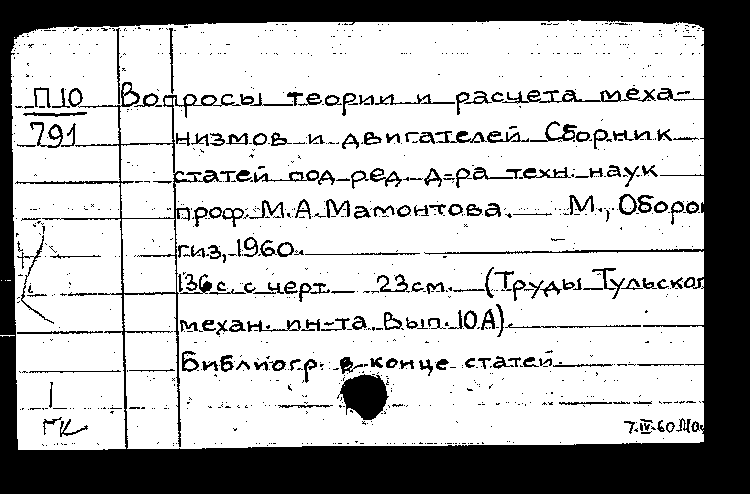 П10 Вопросы теории и расчета меха-
791 низмов и двигателей. Сборник
статей под ред. д-ра техн. наук
проф. М.А. Мамонтова. М., Оборон
гиз, 1960.
136 с. с черт. 23 см. (Труды Тульског
механ. ин-та. Вып. 10А).
Библиогр. в конце статей.
1
ГК
7.IV.60